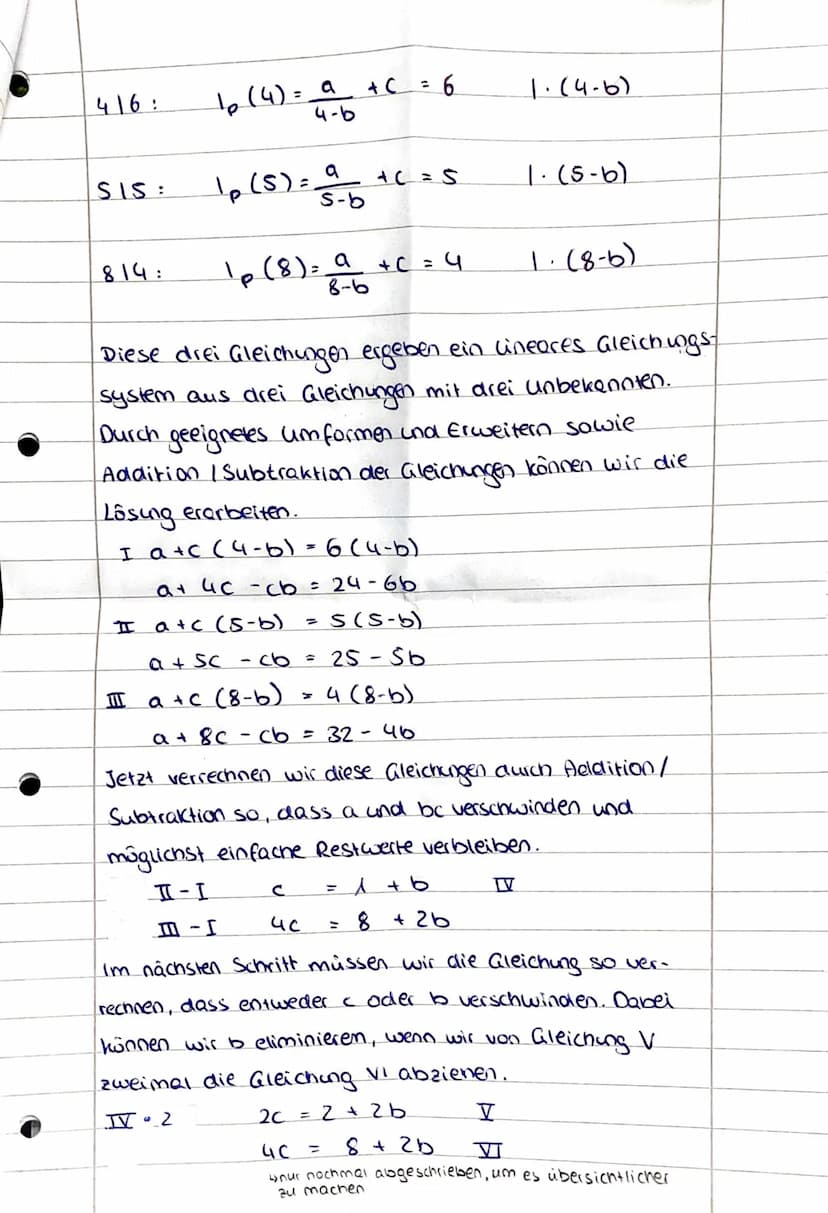 4|6: lp(4) = a/(4-b) + c = 6 |·(4-b)
5|5: lp(5) = a/(5-b) + c = 5 |·(5-b)
8|4: lp(8) = a/(8-b) + c = 4 |·(8-b)
Diese drei Gleichungen ergeben ein lineares Gleichungs-
system aus drei Gleichungen mit drei Unbekannten.
Durch geeignetes Umformen und Erweitern sowie
Addition / Subtraktion der Gleichungen können wir die
Lösung erarbeiten.
I a+c(4-b) = 6(4-b)
a+ 4c -cb = 24-6b
II a+c(5-b) = 5(5-b)
a + 5c - cb = 25 - 5b
III a+c(8-b) = 4(8-b)
a + 8c - cb = 32 - 4b
Jetzt verrechnen wir diese Gleichungen durch Addition/
Subtraktion so, dass a und bc verschwinden und
möglichst einfache Restwerte verbleiben.
II-I c = 1 + b IV
III-I 4c = 8 + 2b
Im nächsten Schritt müssen wir die Gleichung so ver-
rechnen, dass entweder c oder b verschwinden. Dabei
können wir b eliminieren, wenn wir von Gleichung V
zweimal die Gleichung VI abziehen.
IV · 2 2c = 2 + 2b V
4c = 8 + 2b VI
↳nur nochmal abgeschrieben, um es übersichtlicher
zu machen